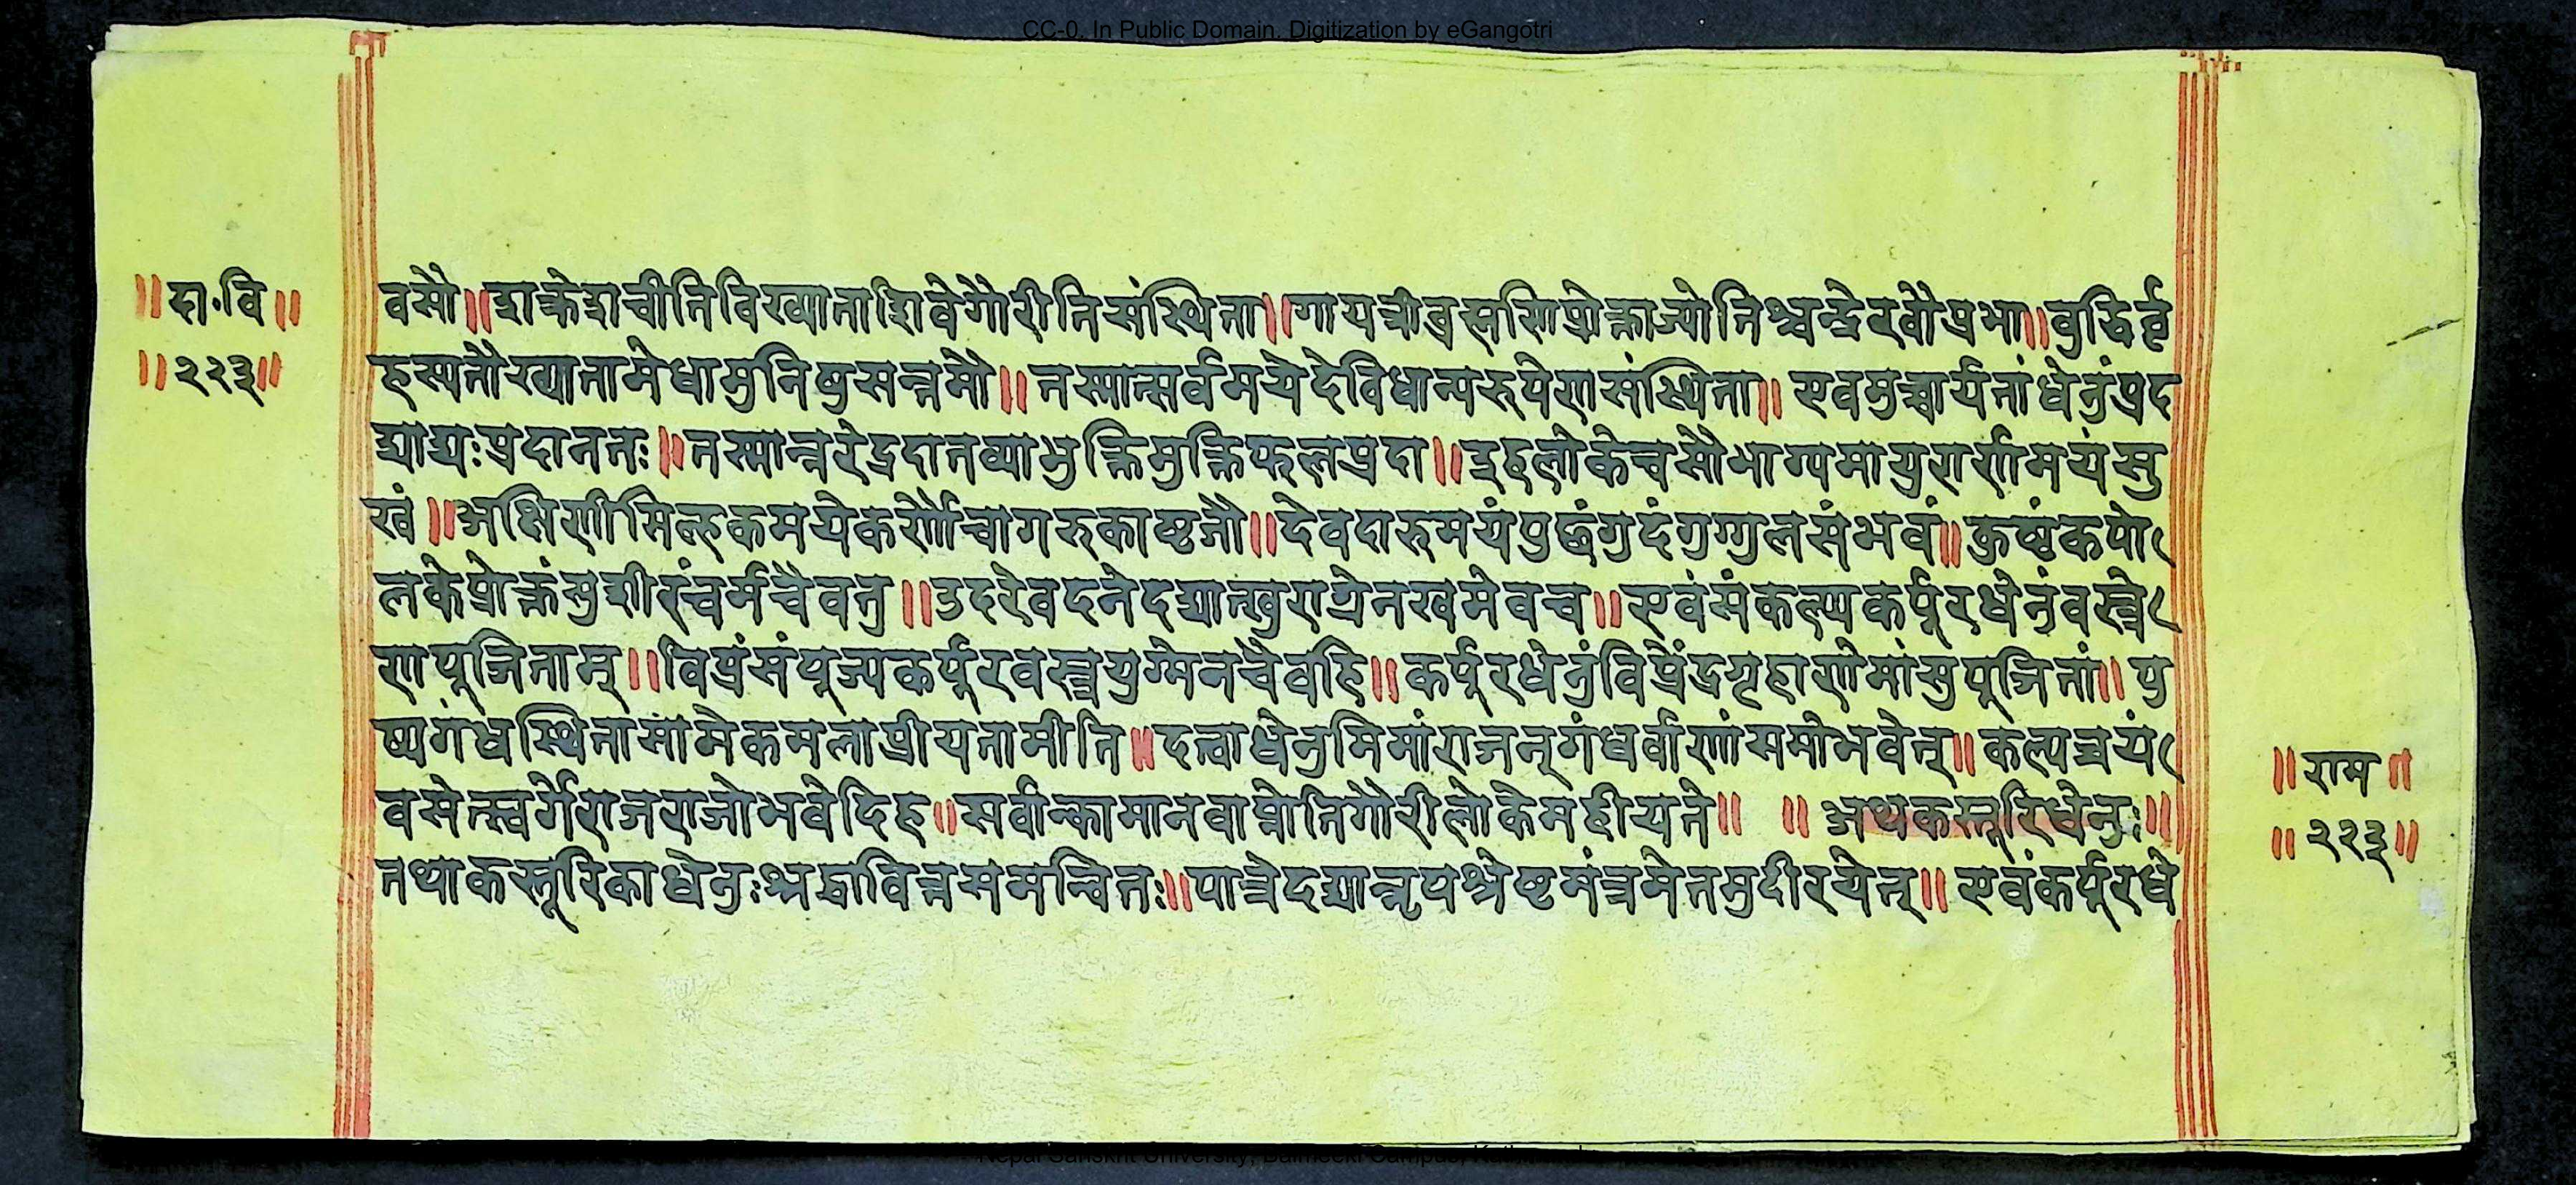 CC-0. In Public Domain. Digitization by eGangotri
॥दा॰वि॥
॥२२३॥
वसौ॥शक्रेशचीतिविख्याताशिवेगौरीतिसंस्थिता॥गायत्रीब्रह्मणिप्रोक्ताज्योतिश्चन्द्रेरवौप्रभा॥बुद्धिर्वृ
हस्पतौख्यातामेधामुनिषुसत्तमौ॥तस्मात्सर्वमयेदेविधान्यरुपेणसंस्थिता॥एवमुच्चार्यतांधेनुंप्रद
द्याद्यःप्रदानतः॥तस्मान्नरेद्रदातव्याभुक्तिमुक्तिफलप्रदा॥इहलोकेचसौभाग्यमायुरारोग्यमयंसु
खं॥अक्षिणीसिल्हकमयेकर्णौचागरुकाष्ठजौ॥देवदारुमयंपुछंगुदंगुग्गुलसंभवं॥कुष्ठंकपो
लकेप्रोक्तंमुशीरंचर्मचैवतु॥उदरेवदनेदद्यात्खुराग्रेनखमेवच॥एवंसंकल्प्यकर्पूरधेनुंवस्त्रे
णपूजिताम्॥विप्रंसंपूज्यकर्पूरवस्त्रयुग्मेनचैवहि॥कर्पूरधेनुंविप्रेंद्रगृहाणेमांसुपूजितां॥पु
ष्पगंधस्थितासामेकमलाप्रीयतामीति॥दत्वाधेनुमिमांराजन्गंधर्वाणांसमोभवेत्॥कल्पत्रयं
वसेत्स्वर्गेराजराजोभवेदिह॥सर्वान्कामानवाप्नोतिगौरीलोकेमहीयते॥ ॥अथकस्तूरिधेनुः॥
तथाकस्तूरिकाधेनुःश्रद्धावित्तसमन्वितः॥पात्रेदद्यान्नृपश्रेष्ठमंत्रमेतमुदीरयेत्॥एवंकर्पूरधे
॥राम॥
॥२२३॥